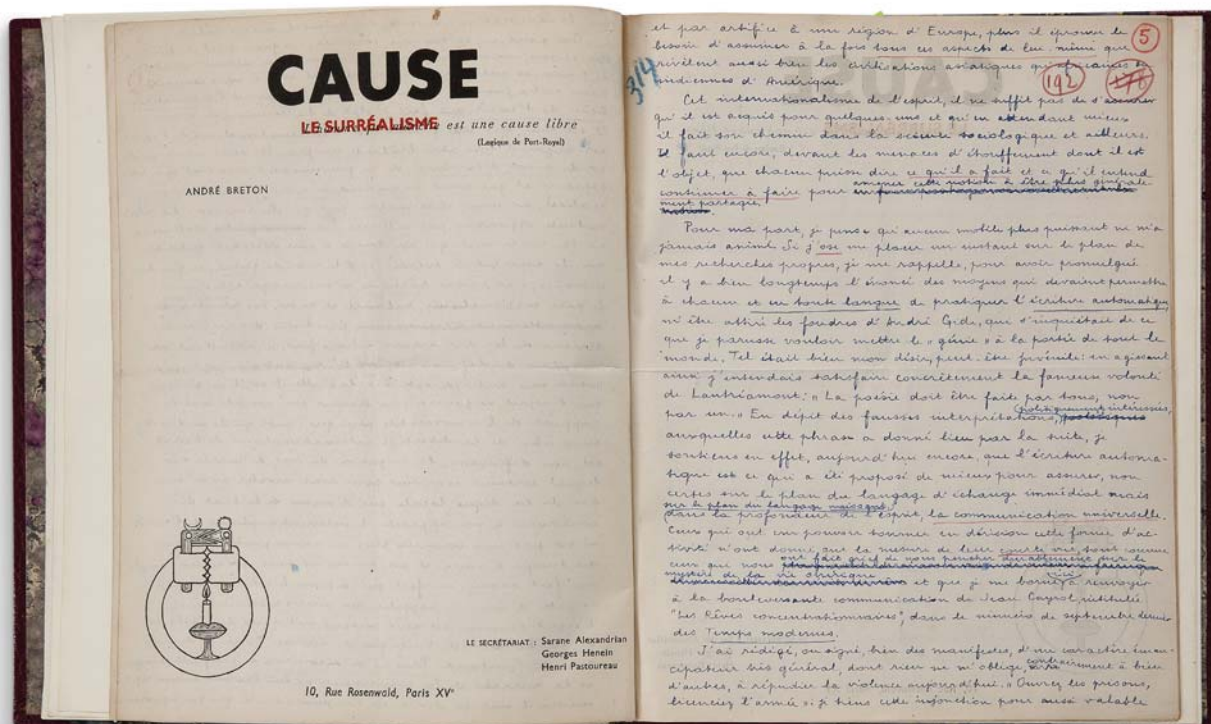 CAUSE
LE SURRÉALISME
est une cause libre
(Logique de Port-Royal)
ANDRÉ BRETON
LE SECRÉTARIAT : Sarane Alexandrian
Georges Henein
Henri Pastoureau
10, Rue Rosenwald, Paris XVe
314
5
192
178
et par artifice à une région d'Europe, plus il éprouve le
besoin d'assumer à la fois tous ces aspects de lui-même que
révèlent aussi bien les civilisations asiatiques qu'africaines et
indiennes d'Amérique.
Cet internationalisme de l'esprit, il ne suffit pas de s'assurer
qu'il est acquis pour quelques-uns et qu'en attendant mieux
il fait son chemin dans la science sociologique et ailleurs.
Il faut encore, devant les menaces d'étouffement dont il est
l'objet, que chacun puisse dire ce qu'il a fait et ce qu'il entend
continuer à faire pour amener cette notion à être plus générale-
ment partagée.
Pour ma part, je pense qu'aucun mobile plus puissant ne m'a
jamais animé. Si j'ose me placer un instant sur le plan de
mes recherches propres, je me rappelle, pour avoir promulgué
il y a bien longtemps l'énoncé des moyens qui devaient permettre
à chacun et en toute langue de pratiquer l'écriture automatique,
m'être attiré les foudres d'André Gide, qui s'inquiétait de ce
que je parusse vouloir mettre le « génie » à la portée de tout le
monde. Tel était bien mon désir, peut-être juvénile : en agissant
ainsi j'entendais satisfaire concrètement la fameuse volonté
de Lautréamont : « La poésie doit être faite par tous, non
par un. » En dépit des fausses interprétations, politiquement intéressées,
auxquelles cette phrase a donné lieu par la suite, je
soutiens en effet, aujourd'hui encore, que l'écriture automa-
tique est ce qui a été proposé de mieux pour assurer, non
certes sur le plan du langage d'échange immédiat mais
sur le plan du langage
dans la profondeur de l'esprit, la communication universelle.
Ceux qui ont cru pouvoir tourner en dérision cette forme d'ac-
tivité n'ont donné que la mesure de leur courte vue, tout comme
ceux qui nous ont fait grief de nous pencher durablement sur le
mystère de la vie onirique et que je me borne ici à renvoyer
à la bouleversante communication de Jean Cayrol, intitulée
"Les Rêves concentrationnaires", dans le numéro de septembre dernier
des Temps modernes.
J'ai rédigé, ou signé, bien des manifestes, d'un caractère éman-
cipateur très général, dont rien ne m'oblige, contrairement à bien
d'autres, à répudier la violence aujourd'hui. « Ouvrez les prisons,
licenciez l'armée » : je tiens cette injonction pour aussi valable